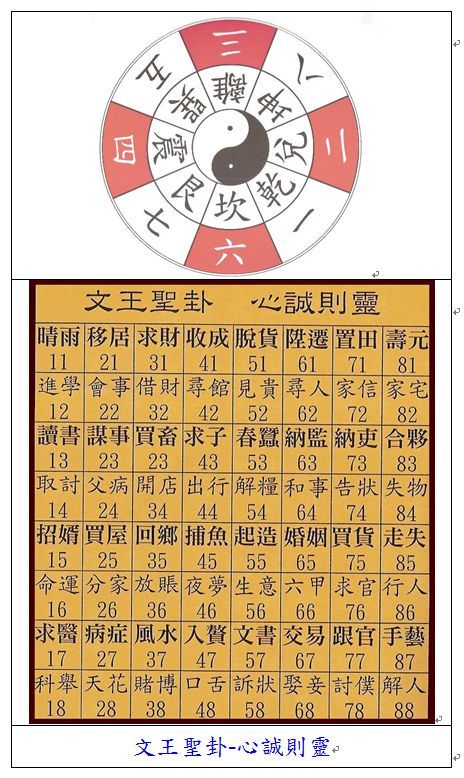 三 八 二 一 六 七 四 五
離 坤 兌 乾 坎 艮 震 巽
文王聖卦 心誠則靈
晴雨 移居 求財 收成 脫貨 陞遷 置田 壽元
11 21 31 41 51 61 71 81
進學 會事 借財 尋館 見貴 尋人 家信 家宅
12 22 32 42 52 62 72 82
讀書 謀事 買畜 求子 春蠶 納監 納吏 合夥
13 23 23 43 53 63 73 83
取討 父病 開店 出行 解糧 和事 告狀 失物
14 24 34 44 54 64 74 84
招婿 買屋 回鄉 捕魚 起造 婚姻 買貨 走失
15 25 35 45 55 65 75 85
命運 分家 放賬 夜夢 生意 六甲 求官 行人
16 26 36 46 56 66 76 86
求醫 病症 風水 入贅 文書 交易 跟官 手藝
17 27 37 47 57 67 77 87
科舉 天花 賭博 口舌 訴狀 娶妾 討僕 解人
18 28 38 48 58 68 78 88
文王聖卦-心誠則靈